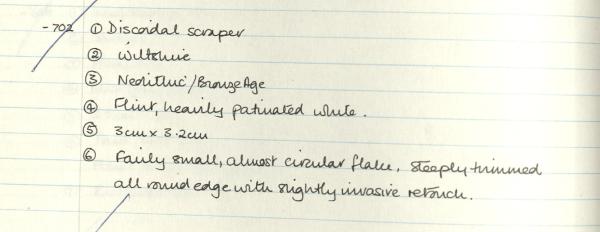 -702 ① Discoidal scraper
② Wiltshire
③ Neolithic/Bronze Age
④ Flint, heavily patinated white.
⑤ 3cm x 3.2cm
⑥ Fairly small, almost circular flake, steeply trimmed
all round edge with slightly invasive retouch.